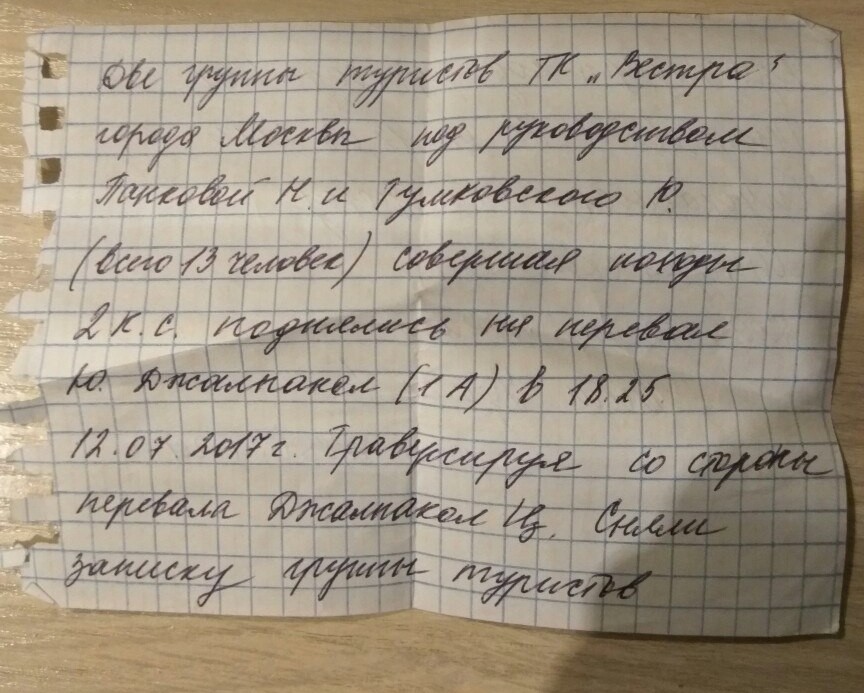 Две группы туристов ТК „Вестра"
города Москвы под руководством
Панковой Н. и Тумковского Ю.
(всего 13 человек) совершая походы
2 к.с. поднялись на перевал
Ю. Джалпакол (1А) в 18.25
12.07.2017г. Траверсируя со стороны
перевала Джалпакол Ц. Сняли
записку группы туристов